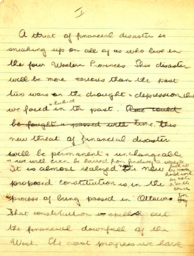 I
A threat of financial disaster is
sneaking up on all of us who live in
the four Western Provinces. This disaster
will be more serious than the past
two wars or the drought + depression that
we faced in the past.
new threat of financial disaster
will be permanent + unchangeable
+ we will even be barred from
It is almost realized. The new
proposed constitution is in the
process of being passed in Ottawa
That constitution spells out
the financial downfall of the
West. The most progress we have